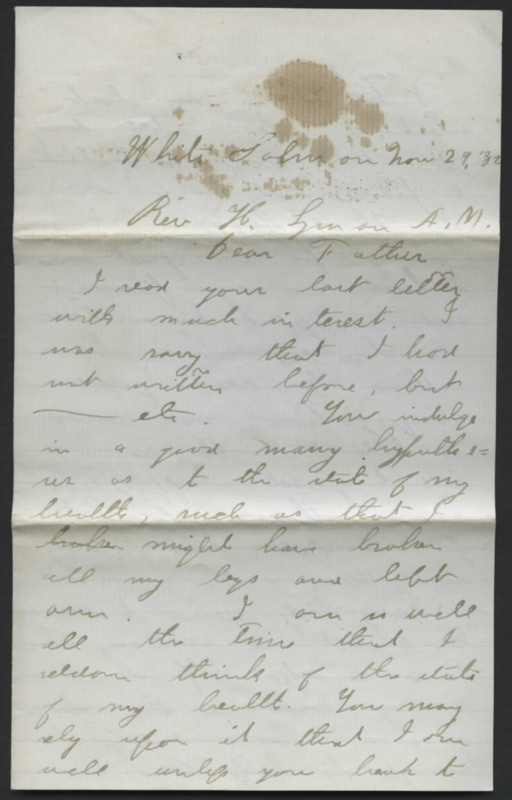 White Salmon Nov 29, '82
Rev H. Lyman A.M.
Dear Father
I read your last letter
with much interest. I
was sorry that I had
not written before, but
—— etc. You indulge
in a good many hypothe=
ses as to the state of my
health, such as that I
broken might have broken
all my legs and left
arm. I am so well
all the time that I
seldom think of the state
of my health. You may
rely upon it that I am
well unless you hear to